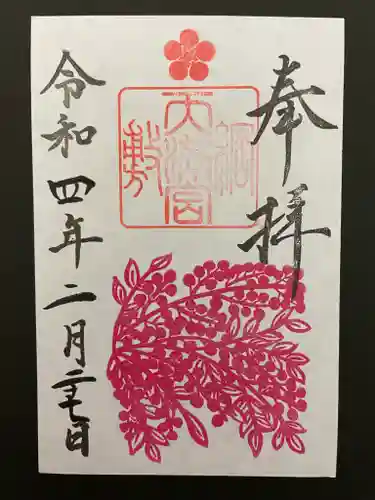 奉拝
綱敷天満宮
令和四年二月二十七日